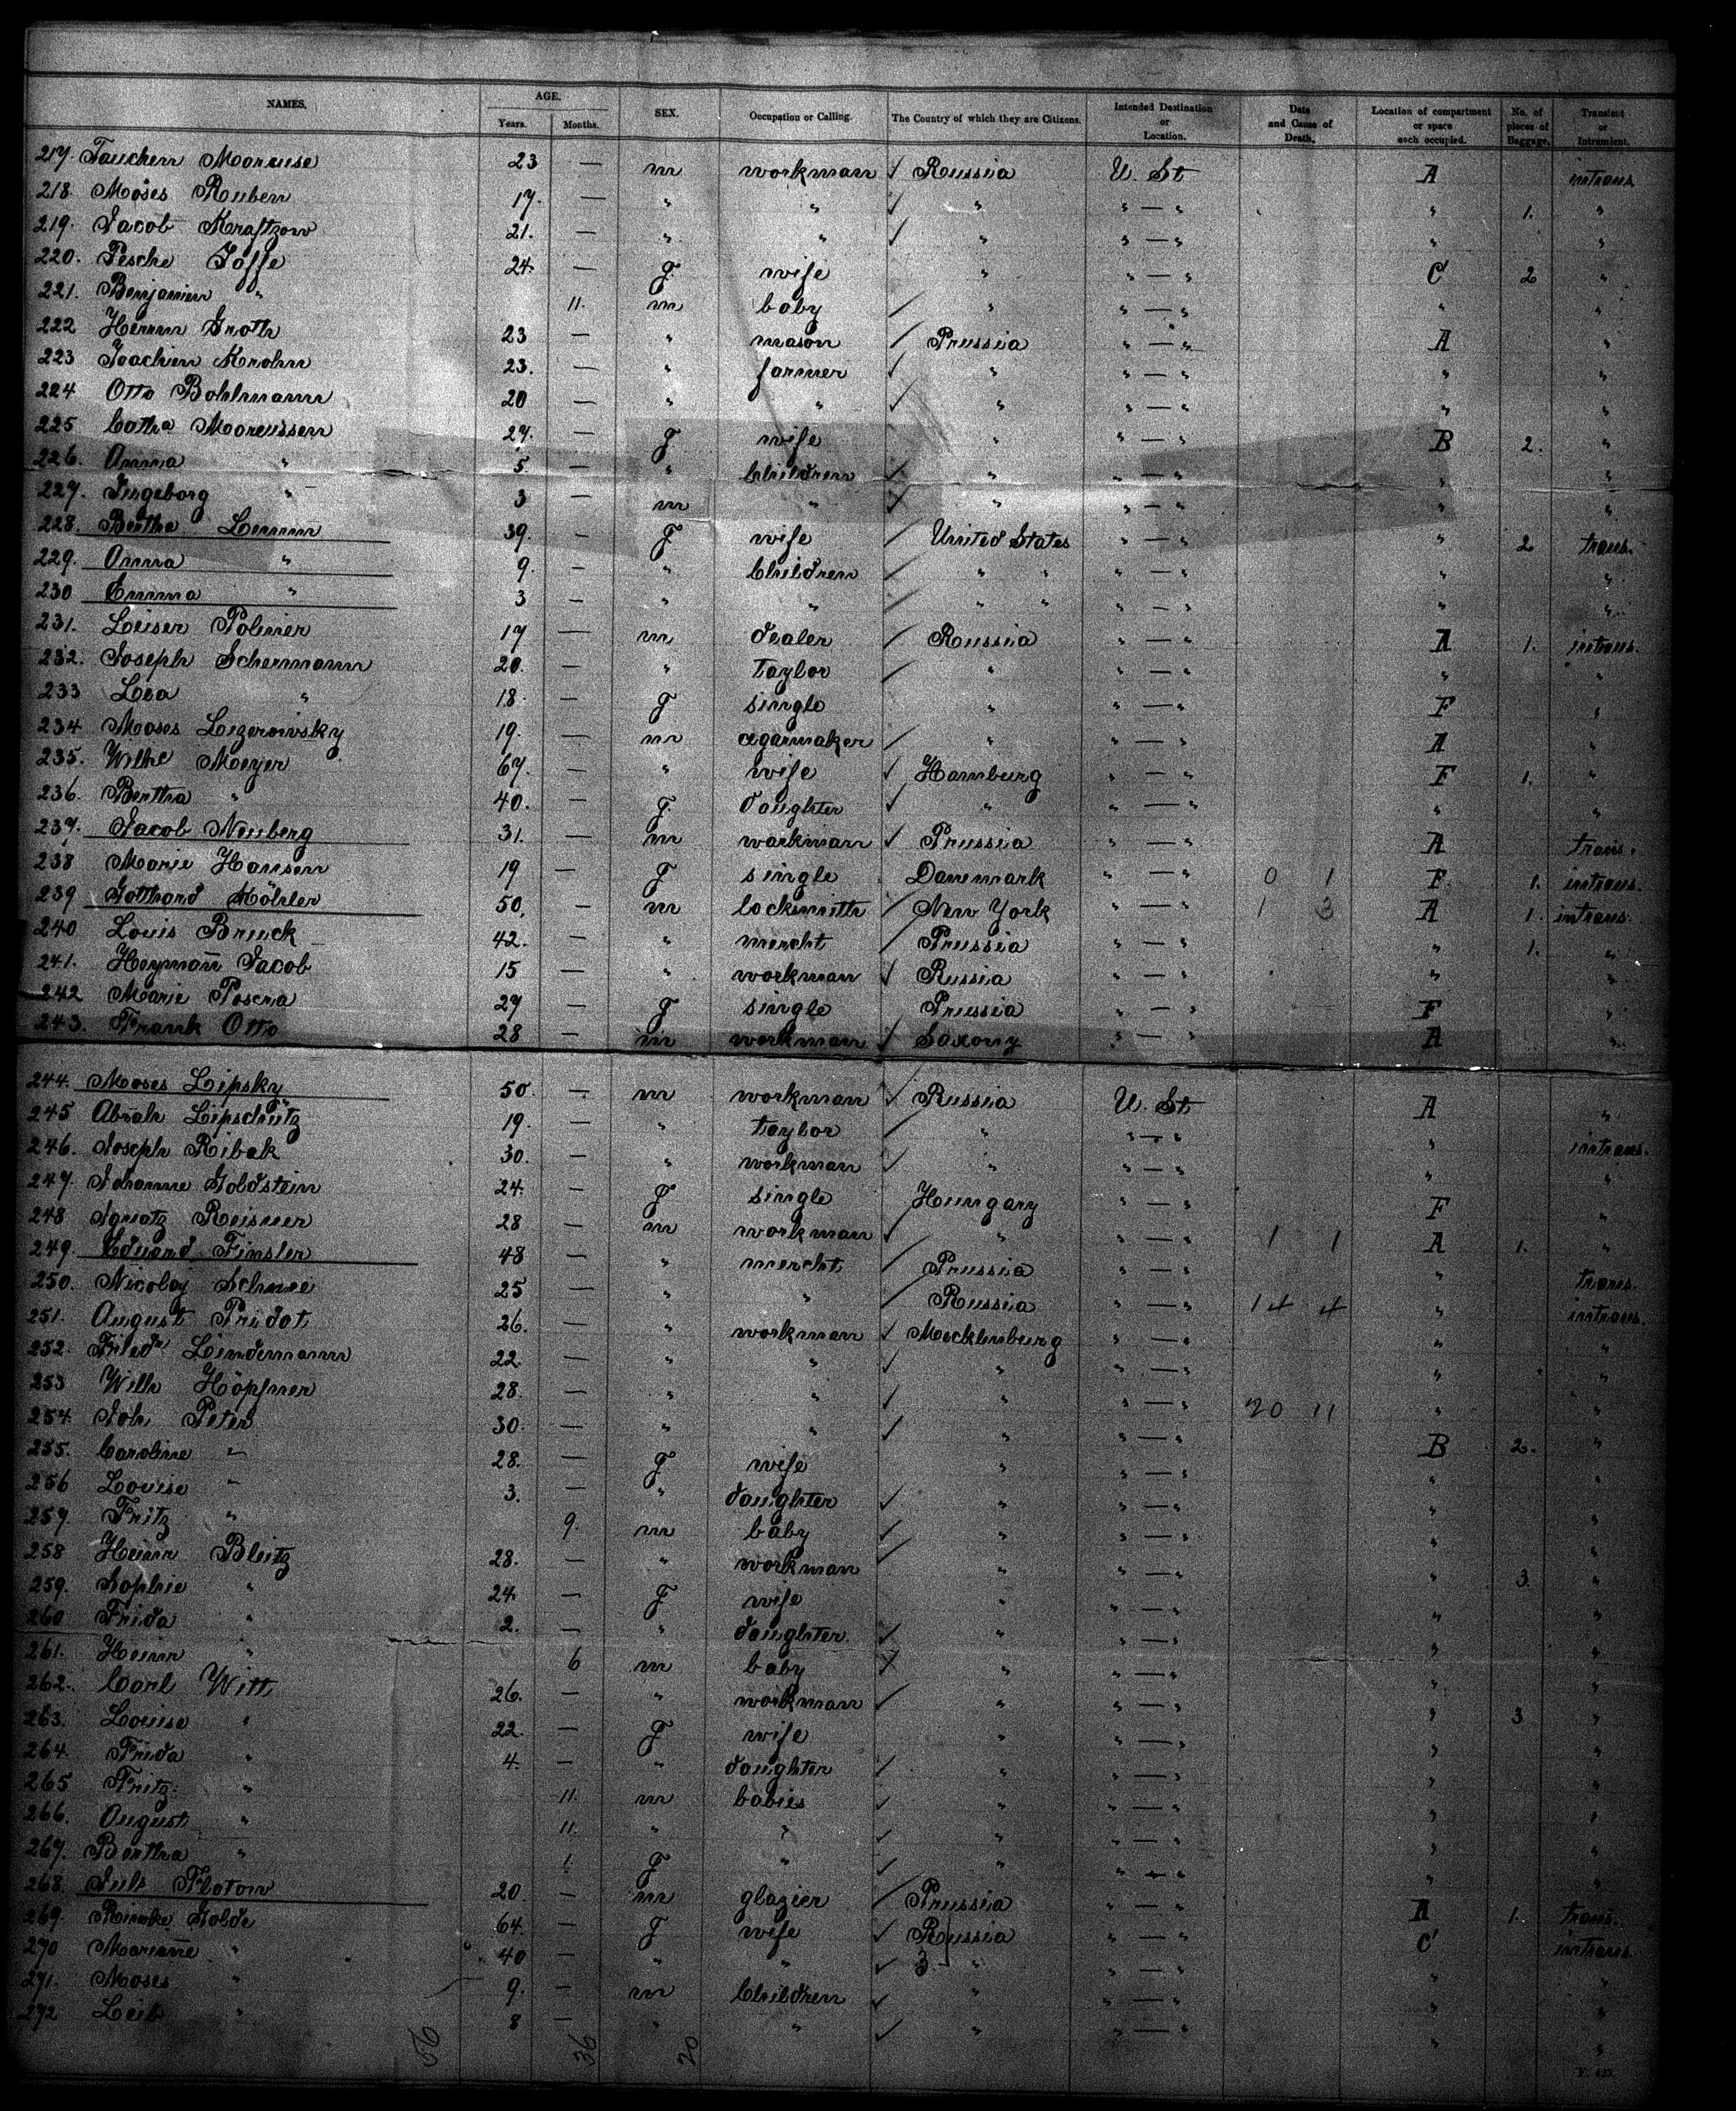 NAMES. AGE. Years. Months. SEX. Occupation or Calling. The Country of which they are Citizens. Intended Destination or Location. Date and Cause of Death. Location of compartment or space each occupied. No. of pieces of Baggage. Transient or Intransient.
217. Tauchem Marcuse 23 — m workman ✓ Russia U. St A intrans
218. Moses Ruben 17. — " " ✓ " " — " " 1. "
219. Jacob Kraftzow 21. — " " ✓ " " — " " "
220. Pesche Joffe 24. — f wife " " — " C 2 "
221. Benjamin " 11. m baby / " " — " " "
222 Herrm Groth 23 — " mason / Prussia " — " A "
223 Joachim Krohn 23. — " farmer ✓ " " — " " "
224 Otto Bohlmann 20 — " " ✓ " " — " " "
225 Catha Marcussen 27. — f wife " " — " B 2. "
226. Anna " 5. — " Children ✓ " " — " " "
227. Ingeborg " 3 — m " ✓ " " — " " "
228. Bertha Lemm 39. — f wife / United States " — " " 2 trans.
229. Anna " 9. — " Children / " " " — " " "
230 Emma " 3 — " " / " " " — " " "
231. Leiser Polmer 17 — m dealer / Russia " — " A 1. intrans.
232. Joseph Schermann 20. — " taylor / " " — " " "
233 Lea " 18. — f single " " — " F "
234 Moses Lezerowsky 19. — m cigarmaker / " " — " A "
235. Wilhe Meyer 67. — " wife ✓ Hamburg " — " F 1. "
236. Bertha " 40. — f. daughter ✓ " " — " " "
237. Jacob Neuberg 31. — m workman ✓ Prussia " — " A trans.
238 Marie Hansen 19 — f single Danemark " — " 0 1 F. 1. intrans.
239 Gotthard Köhler 50. — m locksmith / New York " — " 1 3 A 1. intrans.
240 Louis Bruck 42. — " mercht / Prussia " — " " 1. "
241. Heymann Jacob 15 — " workman ✓ Russia " — " " "
242 Marie Posera 29 — f single Prussia " — " F "
243. Frank Otto 28 — m workman ✓ Saxony " — " A "
244. Moses Lipsky 50. — m workman ✓ Russia U. St A "
245 Abrah Lipschütz 19. — " taylor / " " — " " intrans.
246. Joseph Ribak 30. — " workman ✓ " " — " " "
247. Johanne Goldstein 24. — f single Hungary " — " F "
248 Ignatz Reisner 28 — m workman ✓ " " — " 1 1 A 1. "
249. Eduard Finsler 48 — " mercht / Prussia " — " " trans.
250. Nicolay Schnee 25 — " " / Russia " — " 14 4 " intrans.
251. August Pridat 26. — " workman ✓ Mecklenburg " — " " "
252. Friedr Lindemann 22. — " " ✓ " " — " " "
253 Wilh Höpfner 28. — " " ✓ " " — " 20 11 " "
254. Joh Peters 30. — " " ✓ " " — " B 2. "
255. Caroline " 28. — f wife " " — " " "
256 Louise " 3. — " daughter ✓ " " — " " "
257. Fritz " 9. m baby ✓ " " — " " "
258 Heinr Bleitz 28. — " workman ✓ " " — " " 3. "
259. Sophie " 24. — f wife " " — " " "
260 Frida " 2. — " daughter. ✓ " " — " " "
261. Heinr " 6 m baby ✓ " " — " " "
262. Carl Witt 26. — " workman ✓ " " — " " 3 "
263. Louise " 22. — f wife " " — " " "
264. Frida " 4. — " daughter ✓ " " — " " "
265 Fritz " 11. m babies ✓ " " — " " "
266. August " 11. " " ✓ " " — " " "
267. Bertha " 1. f " ✓ " " — " " "
268. Juls Flotow 20. — m glazier / Prussia " — " A 1. trans.
269. Golde 64. — f wife ✓ Russia " — " C intrans.
270 Marianne " 40 — " " ✓ 3 " " — " " "
271. Moses " 9. — m Children ✓ " " — " " "
272 Leib " 8 — " " ✓ " " — " " "
56 36 20